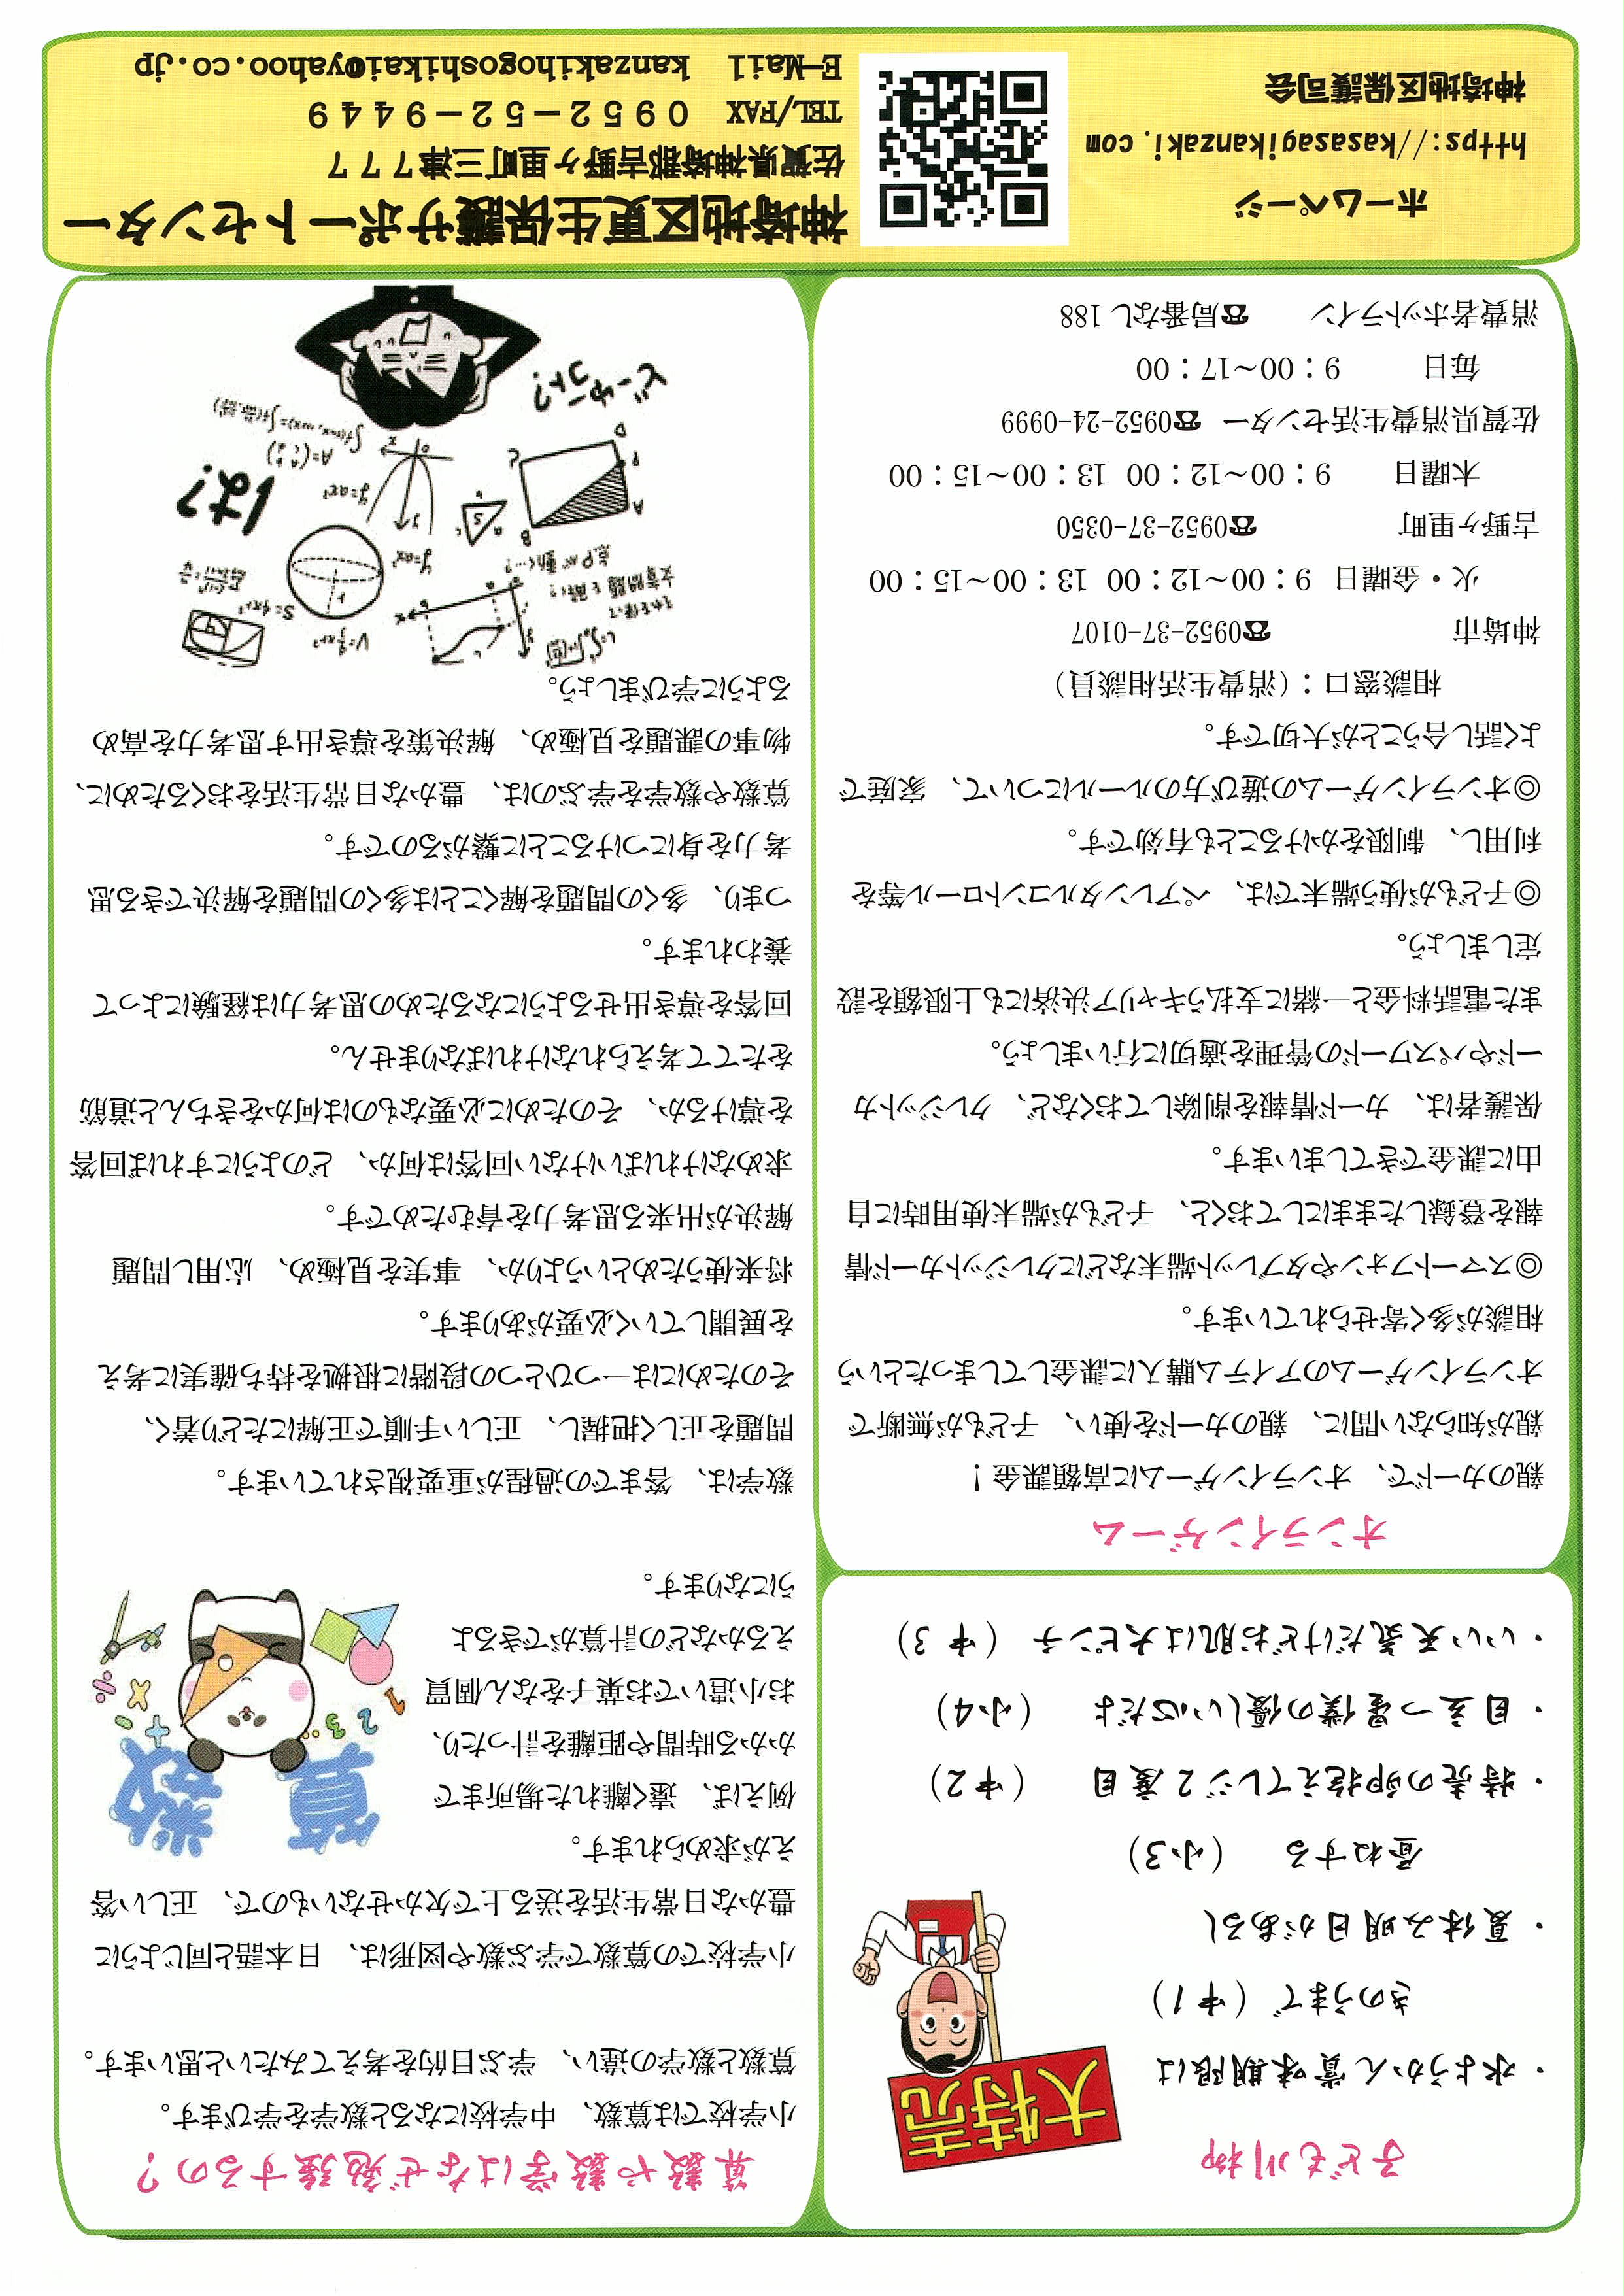 子ども川柳
・水ようかん賞味期限は
きのうまで（中1）
・夏休み明日があるし
昼ねする（小3）
・特売の卵抱えてレジ2度目（中2）
・目立つ星僕の優しい心だよ（小4）
・いい天気だけどお肌は大ピンチ（中3）
大特売
オンラインゲーム
親のカードで、オンラインゲームに高額課金！
親が知らない間に、親のカードを使い、子どもが無断で
オンラインゲームのアイテム購入に課金してしまったという
相談が多く寄せられています。
◎スマートフォンやタブレット端末などにクレジットカード情
報を登録したままにしておくと、子どもが端末使用時に自
由に課金できてしまいます。
保護者は、カード情報を削除しておくなど、クレジットカ
ードやパスワードの管理を適切に行いましょう。
また電話料金と一緒に支払うキャリア決済にも上限額を設
定しましょう。
◎子どもが使う端末では、ペアレンタルコントロール等を
利用し、制限をかけることも有効です。
◎オンラインゲームの遊び方のルールについて、家庭で
よく話し合うことが大切です。
相談窓口：（消費生活相談員）
神埼市 ☎0952-37-0107
火・金曜日 9：00～12：00 13：00～15：00
吉野ヶ里町 ☎0952-37-0350
木曜日 9：00～12：00 13：00～15：00
佐賀県消費生活センター ☎0952-24-0999
毎日 9：00～17：00
消費者ホットライン ☎局番なし188
算数や数学はなぜ勉強するの？
小学校では算数、中学校になると数学を学びます。
算数と数学の違い、学ぶ目的を考えてみたいと思います。
小学校での算数で学ぶ数や図形は、日本語と同じように
豊かな日常生活を送る上で欠かせないもので、正しい答
えが求められます。
例えば、遠く離れた場所まで
かかる時間や距離を計ったり、
お小遣いでお菓子をなん個買
えるかなどの計算ができるよ
うになります。
算数
1 2 3
数学は、答までの過程が重要視されています。
問題を正しく把握し、正しい手順で正解にたどり着く、
そのためには一つひとつの段階に根拠を持ち確実に考え
を展開していく必要があります。
将来使うためというよりか、事実を見極め、応用し問題
解決が出来る思考力を育むためです。
求めなければいけない回答は何か、どのようにすれば回答
を導けるか、そのために必要なものは何かをきちんと道筋
をたてて考えられなければなりません。
回答を導き出せるようになるための思考力は経験によって
養われます。
つまり、多くの問題を解くことは多くの問題を解決できる思
考力を身につけることに繋がるのです。
算数や数学を学ぶのは、豊かな日常生活をおくるために、
物事の課題を見極め、解決策を導き出す思考力を高め
るように学びましょう。
文章問題を解く？
点Pが動く…？
S=4πr²
y=ax²
y=ax²
は？
どーゆーコト？
ホームページ
https://kasasagikanzaki.com
神埼地区保護司会
神埼地区更生保護サポートセンター
佐賀県神埼郡吉野ヶ里町三津７７７
TEL/FAX ０９５２－５２－９４４９
E-Mail kanzakihogoshikai@yahoo.co.jp